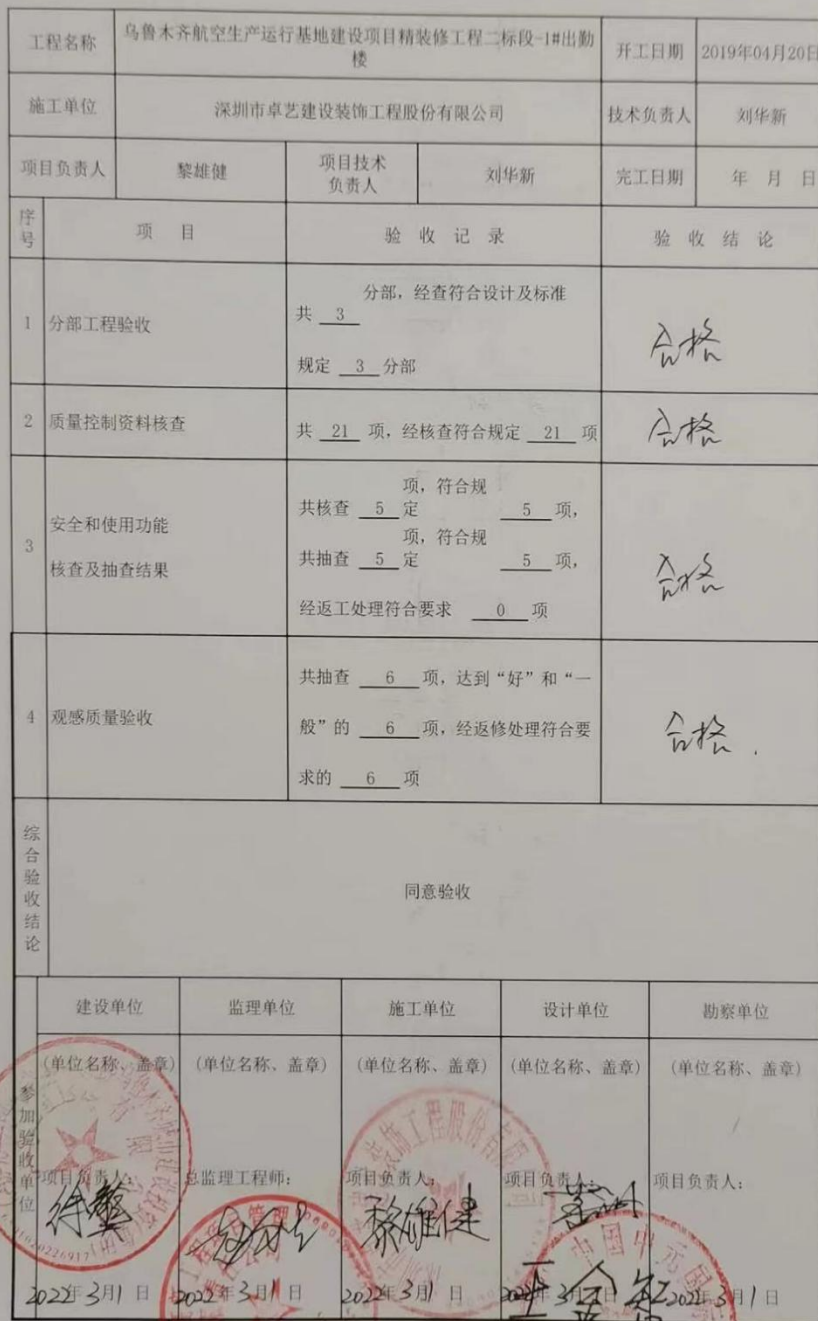 工程名称
乌鲁木齐航空生产运行基地建设项目精装修工程二标段-1#出勤
楼
开工日期
2019年04月20日
施工单位
深圳市卓艺建设装饰工程股份有限公司
技术负责人
刘华新
项目负责人
黎雄健
项目技术
负责人
刘华新
完工日期
年 月 日
序号
项 目
验 收 记 录
验 收 结 论
1
分部工程验收
分部,经查符合设计及标准
共 3
规定 3 分部
合格
2
质量控制资料核查
共 21 项,经核查符合规定 21 项
合格
3
安全和使用功能
核查及抽查结果
项,符合规
共核查 5 定 5 项,
项,符合规
共抽查 5 定 5 项,
经返工处理符合要求 0 项
合格
4
观感质量验收
共抽查 6 项,达到“好”和“一
般”的 6 项,经返修处理符合要
求的 6 项
合格
综合验收结论
同意验收
参加验收单位
建设单位
监理单位
施工单位
设计单位
勘察单位
(单位名称、盖章)
(单位名称、盖章)
(单位名称、盖章)
(单位名称、盖章)
(单位名称、盖章)
项目负责人:
总监理工程师:
项目负责人:
项目负责人:
项目负责人:
黎雄健
2022年3月1日
2022年3月1日
2022年3月1日
2022年3月1日
2022年3月1日